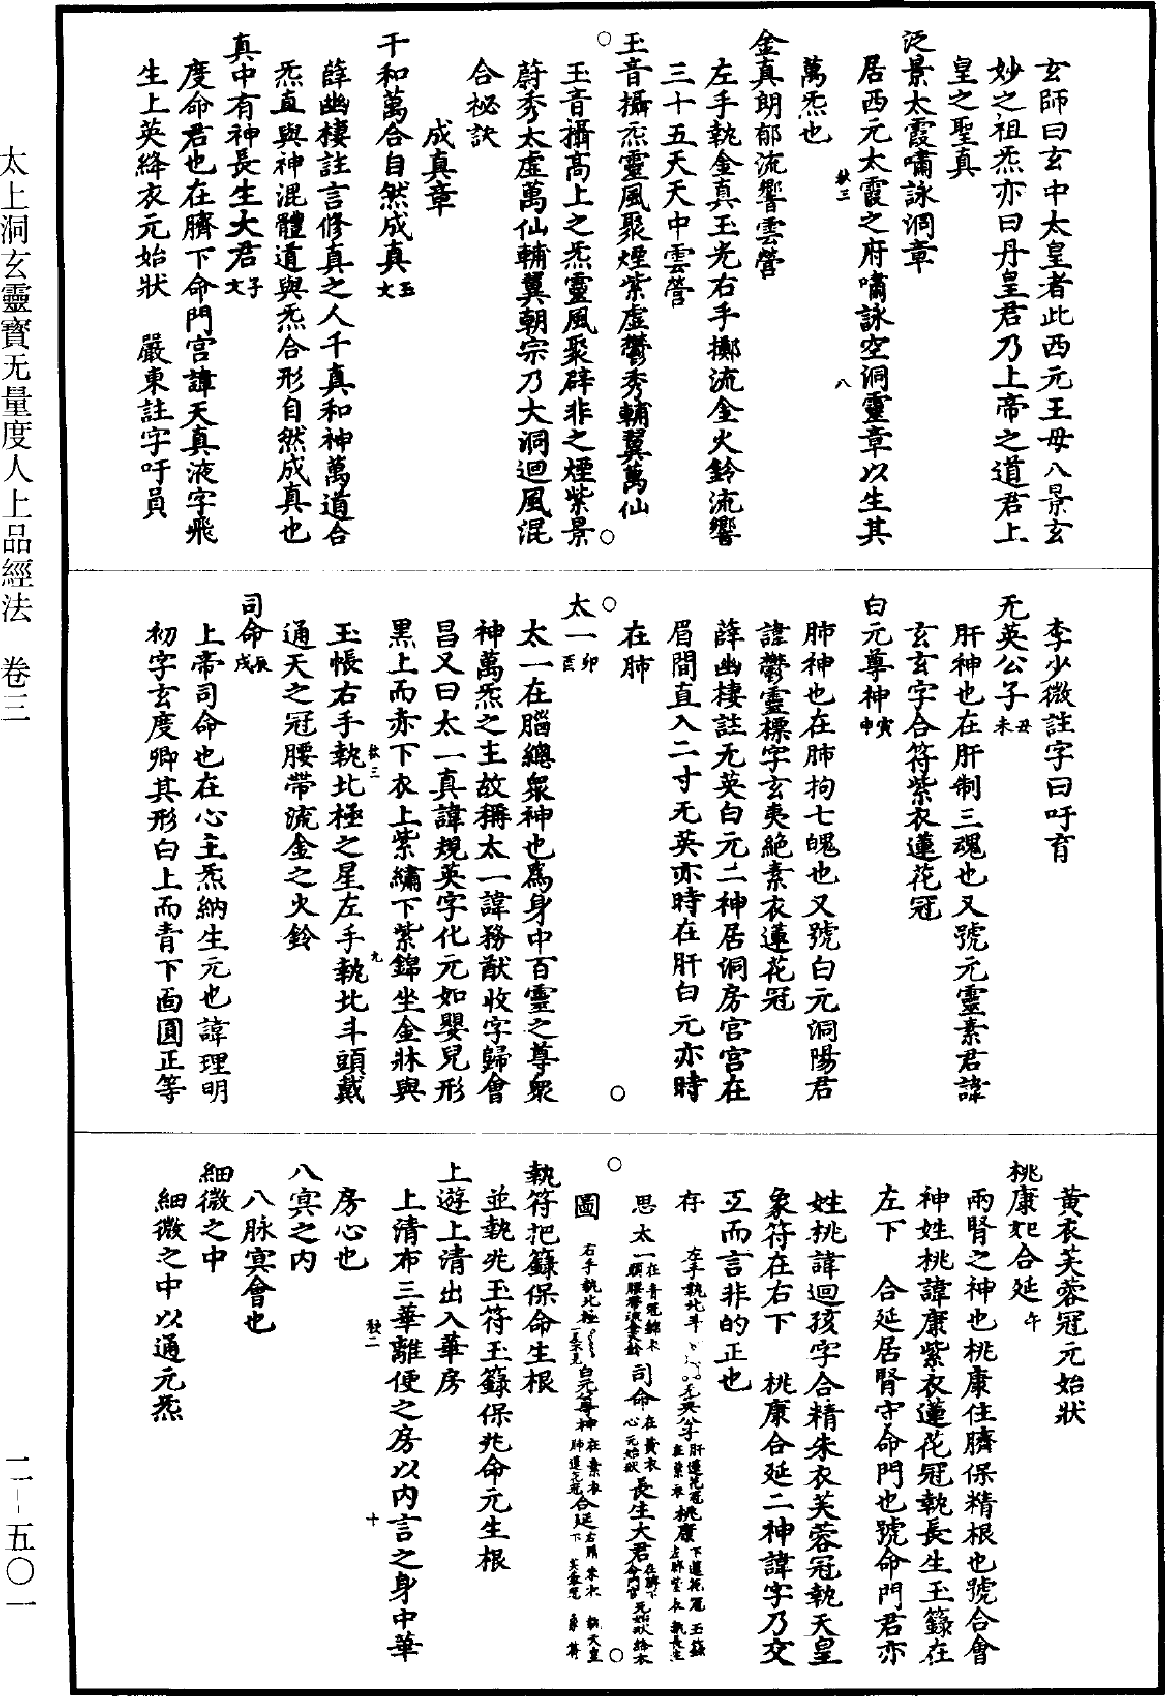 太上洞玄靈寶无量度人上品經法　卷三
二-五〇一
玄師曰玄中太皇者此西元王母八景玄
妙之祖炁亦曰丹皇君乃上帝之道君上
皇之聖真
泛景太霞嘯詠洞章
居西元太霞之府嘯詠空洞靈章以生其
萬炁也
金真朗郁流響雲營
左手執金真玉光右手擲流金火鈴流響
三十五天天中雲營
玉音攝炁靈風聚煙紫虛鬱秀輔翼萬仙
玉音攝高上之炁靈風聚辟非之煙紫景
蔚秀太虛萬仙輔翼朝宗乃大洞迴風混
合祕訣
成真章
千和萬合自然成真五文
薛幽棲註言修真之人千真和神萬道合
炁直與神混體道與炁合形自然成真也
真中有神長生大君子文
度命君也在臍下命門宮諱天真液字飛
生上英絳衣元始狀　嚴東註字吁員
李少微註字曰吁育
无英公子丑未
肝神也在肝制三魂也又號元靈素君諱
玄玄字合符紫衣蓮花冠
白元尊神寅申
肺神也在肺拘七魄也又號白元洞陽君
諱鬱靈標字玄夷絕素衣蓮花冠
薛幽棲註无英白元二神居洞房宮宮在
眉間直入二寸无英亦時在肝白元亦時
在肺
太一卯酉
太一在腦總眾神也為身中百靈之尊眾
神萬炁之主故稱太一諱務猷收字歸會
昌又曰太一真諱規英字化元如嬰兒形
黑上而赤下衣上紫繡下紫錦坐金牀與
玉帳右手執北極之星左手執北斗頭戴
通天之冠腰帶流金之火鈴
司命辰戌
上帝司命也在心主炁納生元也諱理明
初字玄度卿其形白上而青下面圓正等
黃衣芙蓉冠元始狀
桃康起合延午
兩腎之神也桃康住臍保精根也號合會
神姓桃諱康紫衣蓮花冠執長生玉籙在
左下　合延居腎守命門也號命門君亦
姓桃諱迴孩字合精朱衣芙蓉冠執天皇
象符在右下　桃康合延二神諱字乃交
互而言非的正也
存
思
圖
太一
司命
長生大君
无英公子
桃康
白元尊神
合延
左手執北斗
右手執北極
執符把籙保命生根
並執兆玉符玉籙保兆命元生根
上遊上清出入華房
上清布三華離便之房以内言之身中華
房心也
八冥之內
八脉冥會也
細微之中
細微之中以通元炁